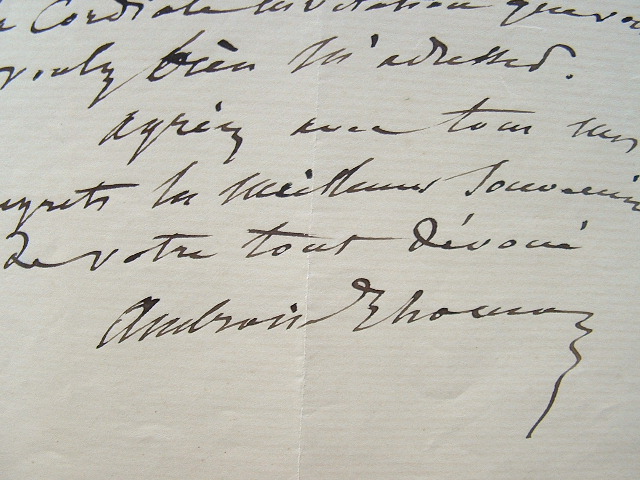 Cordiale invitation que vou
voulez bien m'adresser.
Agréez avec tous mes
regrets les meilleurs souvenirs
de votre tout dévoué
Ambroise Thomas